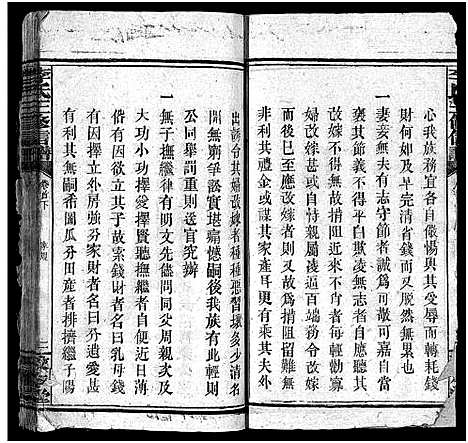 心我族務宜各自儆惕與其受辱而轉耗錢
財何如及早完清省錢而又脱然無累也
一妻妾無夫有志守節者誠爲可敬可嘉自當
褒其節義不得平白欺凌無志者自欲
改嫁不得無故揹阻近來不肖
婦改嫁之家親屬凌逼百端務
改嫁者則又故爲揹阻留難
非利其禮金或謀其家產耳更有乘其夫外
出誘令其婦改嫁者種種惡習壞多少清名
開無窮爭訟實堪痛憾嗣後我族有此輒則
公同舉罰重則送官究辦
一無子撫繼律有明文先儘同父周親次及
大功小功擇愛擇賢聽撫繼者自便近日薄
俗有因欲立其子故索錢財者名曰乳母錢
有因擇立外房強分家財者名曰分遺愛甚
有利其無嗣希圖瓜分田產者排擠繼子陽
李氏三修信譜
卷首下